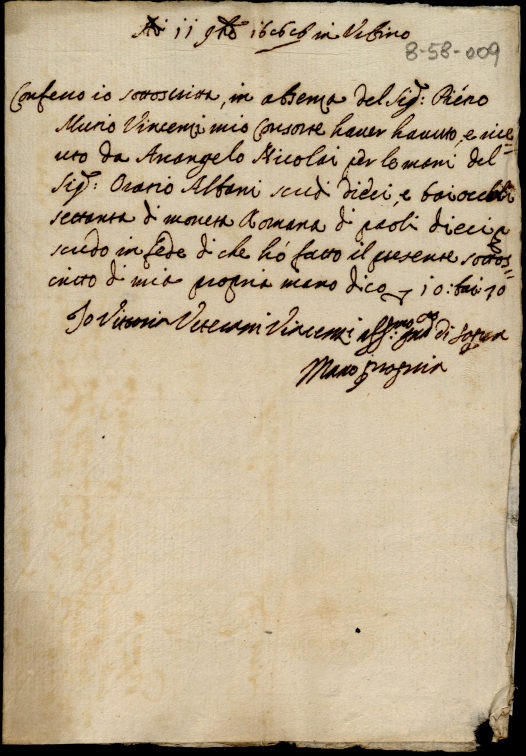 Adi 11 9bre 1666 in Urbino
8-58-009
Confesso io sottoscritta, in absenza del Sigr: Piero
Mutio Vincenzi mio Consorte haver havuto, e rice=
vuto da Arcangelo Nicolai per le mani del
Sigr: Oratio Albani scudi dieci, e baiocchi
settanta di moneta Romana di paoli dieci p
scudo in fede di che hó fatto il presente sottos=
critto di mia propria mano dico 10: bai: 70
Io Vittoria Veterani Vincenzi affermo qto di sopra
Mano propria